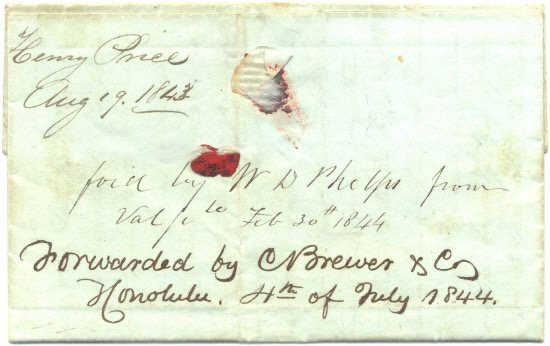 Henry Price
Aug 19. 1843
for'd by W D Phelps from
Valpo Feb 30th 1844
Forwarded by C Brewer & Co
Honolulu. 4th of July 1844.